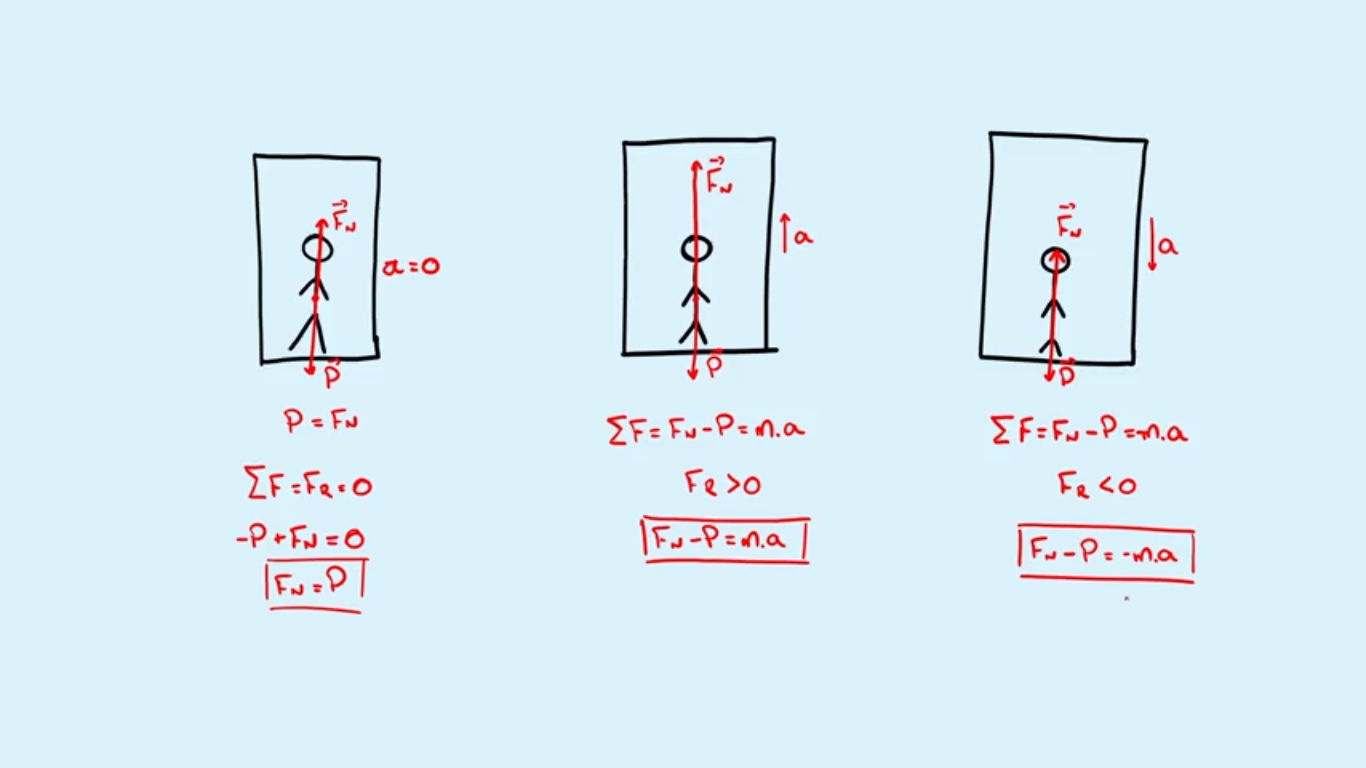 F⃗N
a=0
P⃗
P=FN
ΣF=FR=0
-P+FN=0
FN=P
F⃗N
a
P⃗
ΣF=FN-P=m.a
FR>0
FN-P=m.a
F⃗N
a
P⃗
ΣF=FN-P=m.a
FR<0
FN-P=-m.a